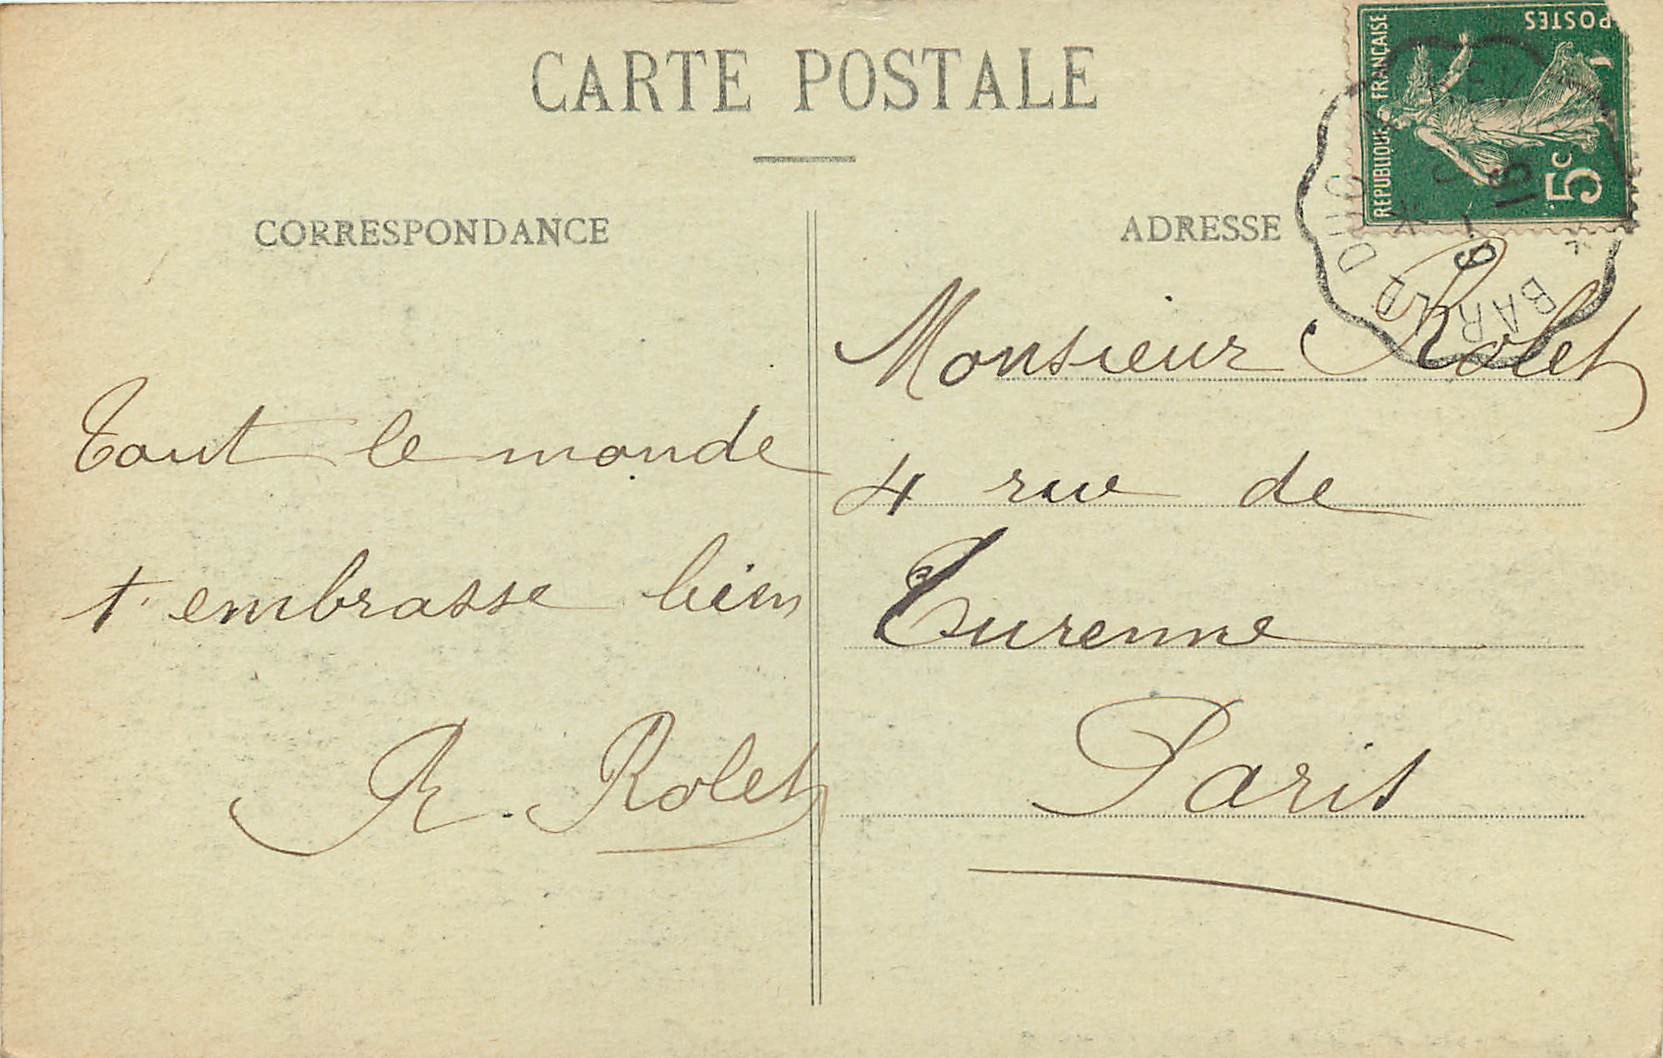 CARTE POSTALE
CORRESPONDANCE
ADRESSE
REPUBLIQUE FRANÇAISE
POSTES
5c
BAR LE DUC
Tout le monde
t'embrasse bien
R. Rolet
Monsieur Rolet
4 rue de
Turenne
Paris